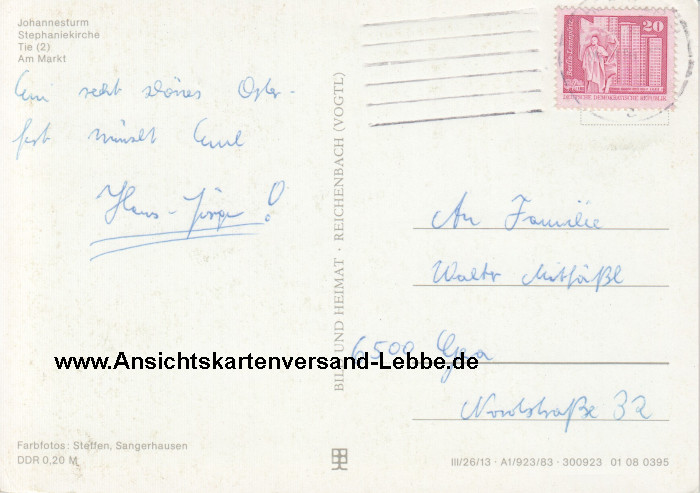 Johannesturm
Stephaniekirche
Tie (2)
Am Markt
Ein recht schönes Oster-
fest wünscht Euch
Hans-Jürgen!
BILD UND HEIMAT · REICHENBACH (VOGTL)
20
Berlin-Leninplatz
DEUTSCHE DEMOKRATISCHE REPUBLIK
An Familie
Walter
6500 Gera
Nordstraße 32
www.Ansichtskartenversand-Lebbe.de
Farbfotos: Steffen, Sangerhausen
DDR 0,20 M
III/26/13 · A1/923/83 · 300923 01 08 0395